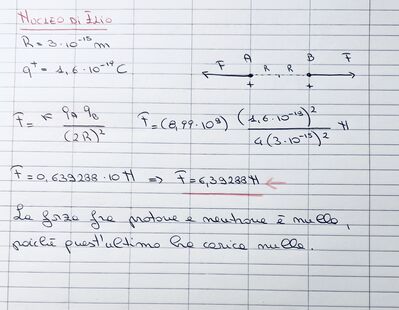 NUCLEO DI ELIO
R = 3·10⁻¹⁵ m
q⁺ = 1,6·10⁻¹⁹ C
F A R R B F
+ +
F = K qA qB / (2R)²
F = (8,99·10⁹) (1,6·10⁻¹⁹)² / 4(3·10⁻¹⁵)² N
F = 0,639288·10 N ⇒ F = 6,39288 N ←
La forza fra protone e neutrone è nulla,
poiché quest'ultimo ha carica nulla.